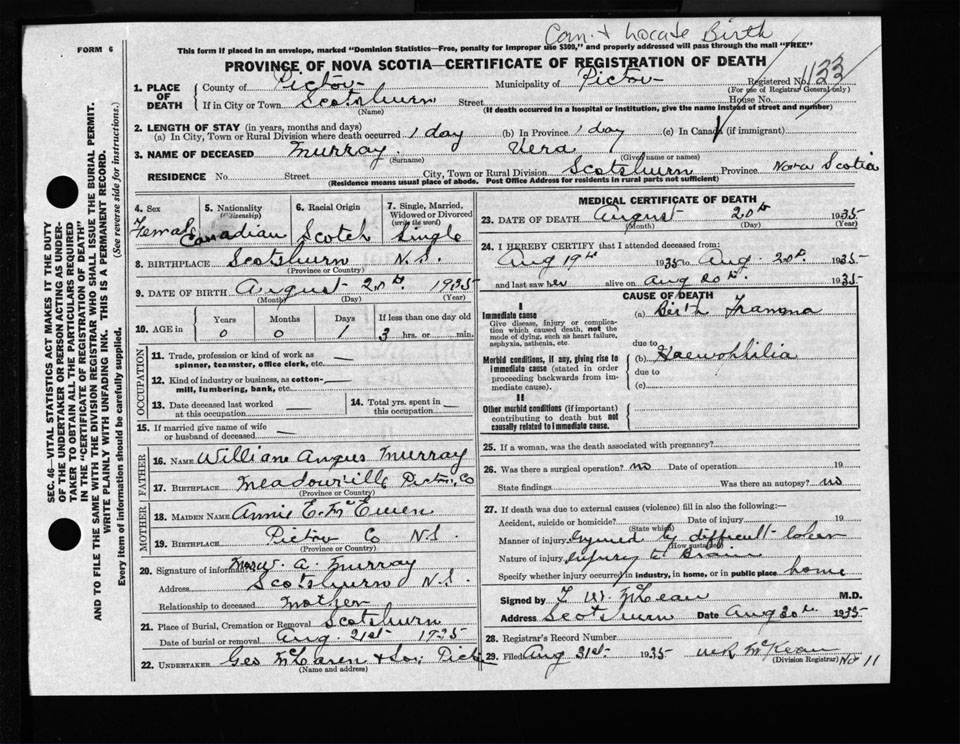 Com. + Locate Birth
FORM 6
This form if placed in an envelope, marked "Dominion Statistics—Free, penalty for improper use $300," and properly addressed will pass through the mail "FREE"
PROVINCE OF NOVA SCOTIA—CERTIFICATE OF REGISTRATION OF DEATH
1. PLACE OF DEATH
County of Pictou Municipality of Pictou Registered No. 133
(For use of Registrar General only)
If in City or Town Scotsburn Street House No.
(Name) (If death occurred in a hospital or institution, give the name instead of street and number)
2. LENGTH OF STAY (in years, months and days)
(a) In City, Town or Rural Division where death occurred 1 day (b) In Province 1 day (c) In Canada (if immigrant)
3. NAME OF DECEASED Murray Vera
(Surname) (Given name or names)
RESIDENCE No. Street City, Town or Rural Division Scotsburn Province Nova Scotia
(Residence means usual place of abode. Post Office Address for residents in rural parts not sufficient)
4. Sex Female
5. Nationality (Citizenship) Canadian
6. Racial Origin Scotch
7. Single, Married, Widowed or Divorced (write the word) Single
8. BIRTHPLACE Scotsburn N.S.
(Province or Country)
9. DATE OF BIRTH August 20th 1935
(Month) (Day) (Year)
10. AGE in Years Months Days If less than one day old
0 0 1 3 hrs. or min.
OCCUPATION
11. Trade, profession or kind of work as spinner, teamster, office clerk, etc. —
12. Kind of industry or business, as cotton-mill, lumbering, bank, etc. —
13. Date deceased last worked at this occupation —
14. Total yrs. spent in this occupation —
15. If married give name of wife or husband of deceased —
FATHER
16. NAME William Angus Murray
17. BIRTHPLACE Meadowville Pictou Co
(Province or Country)
MOTHER
18. MAIDEN NAME Annie E. McEwen
19. BIRTHPLACE Pictou Co N.S.
(Province or Country)
20. Signature of informant Mrs W. A. Murray
Address Scotsburn N.S.
Relationship to deceased Mother
21. Place of Burial, Cremation or Removal Scotsburn
Date of burial or removal Aug. 21st 1935
22. UNDERTAKER Geo McLaren & Son, Pictou
(Name and address)
MEDICAL CERTIFICATE OF DEATH
23. DATE OF DEATH August 20th 1935
(Month) (Day) (Year)
24. I HEREBY CERTIFY that I attended deceased from:
Aug 19th 1935 to Aug. 20th. 1935
and last saw her alive on Aug 20th. 1935
CAUSE OF DEATH
I
Immediate cause (a) Birth Trauma
Give disease, injury or complication which caused death, not the mode of dying, such as heart failure, asphyxia, asthenia, etc.
due to
Morbid conditions, if any, giving rise to immediate cause (stated in order proceeding backwards from immediate cause).
(b) Haemophilia
due to
(c)
II
Other morbid conditions (if important) contributing to death but not causally related to immediate cause.
25. If a woman, was the death associated with pregnancy?
26. Was there a surgical operation? no Date of operation 19
State findings Was there an autopsy? no
27. If death was due to external causes (violence) fill in also the following:—
Accident, suicide or homicide? Date of injury 19
(State which)
Manner of injury Injured by difficult labor
(How sustained)
Nature of injury Injury to Brain
Specify whether injury occurred in industry, in home, or in public place home
Signed by W. McLean M.D.
Address Scotsburn Date Aug 20th 1935
28. Registrar's Record Number
29. Filed Aug 31st. 1935 McKean
(Division Registrar) No 11
SEC. 46—VITAL STATISTICS ACT MAKES IT THE DUTY
OF THE UNDERTAKER OR PERSON ACTING AS UNDER-
TAKER TO OBTAIN ALL THE PARTICULARS REQUIRED
IN THE "CERTIFICATE OF REGISTRATION OF DEATH"
AND TO FILE THE SAME WITH THE DIVISION REGISTRAR WHO SHALL ISSUE THE BURIAL PERMIT.
WRITE PLAINLY WITH UNFADING INK. THIS IS A PERMANENT RECORD.
Every item of information should be carefully supplied. (See reverse side for instructions.)